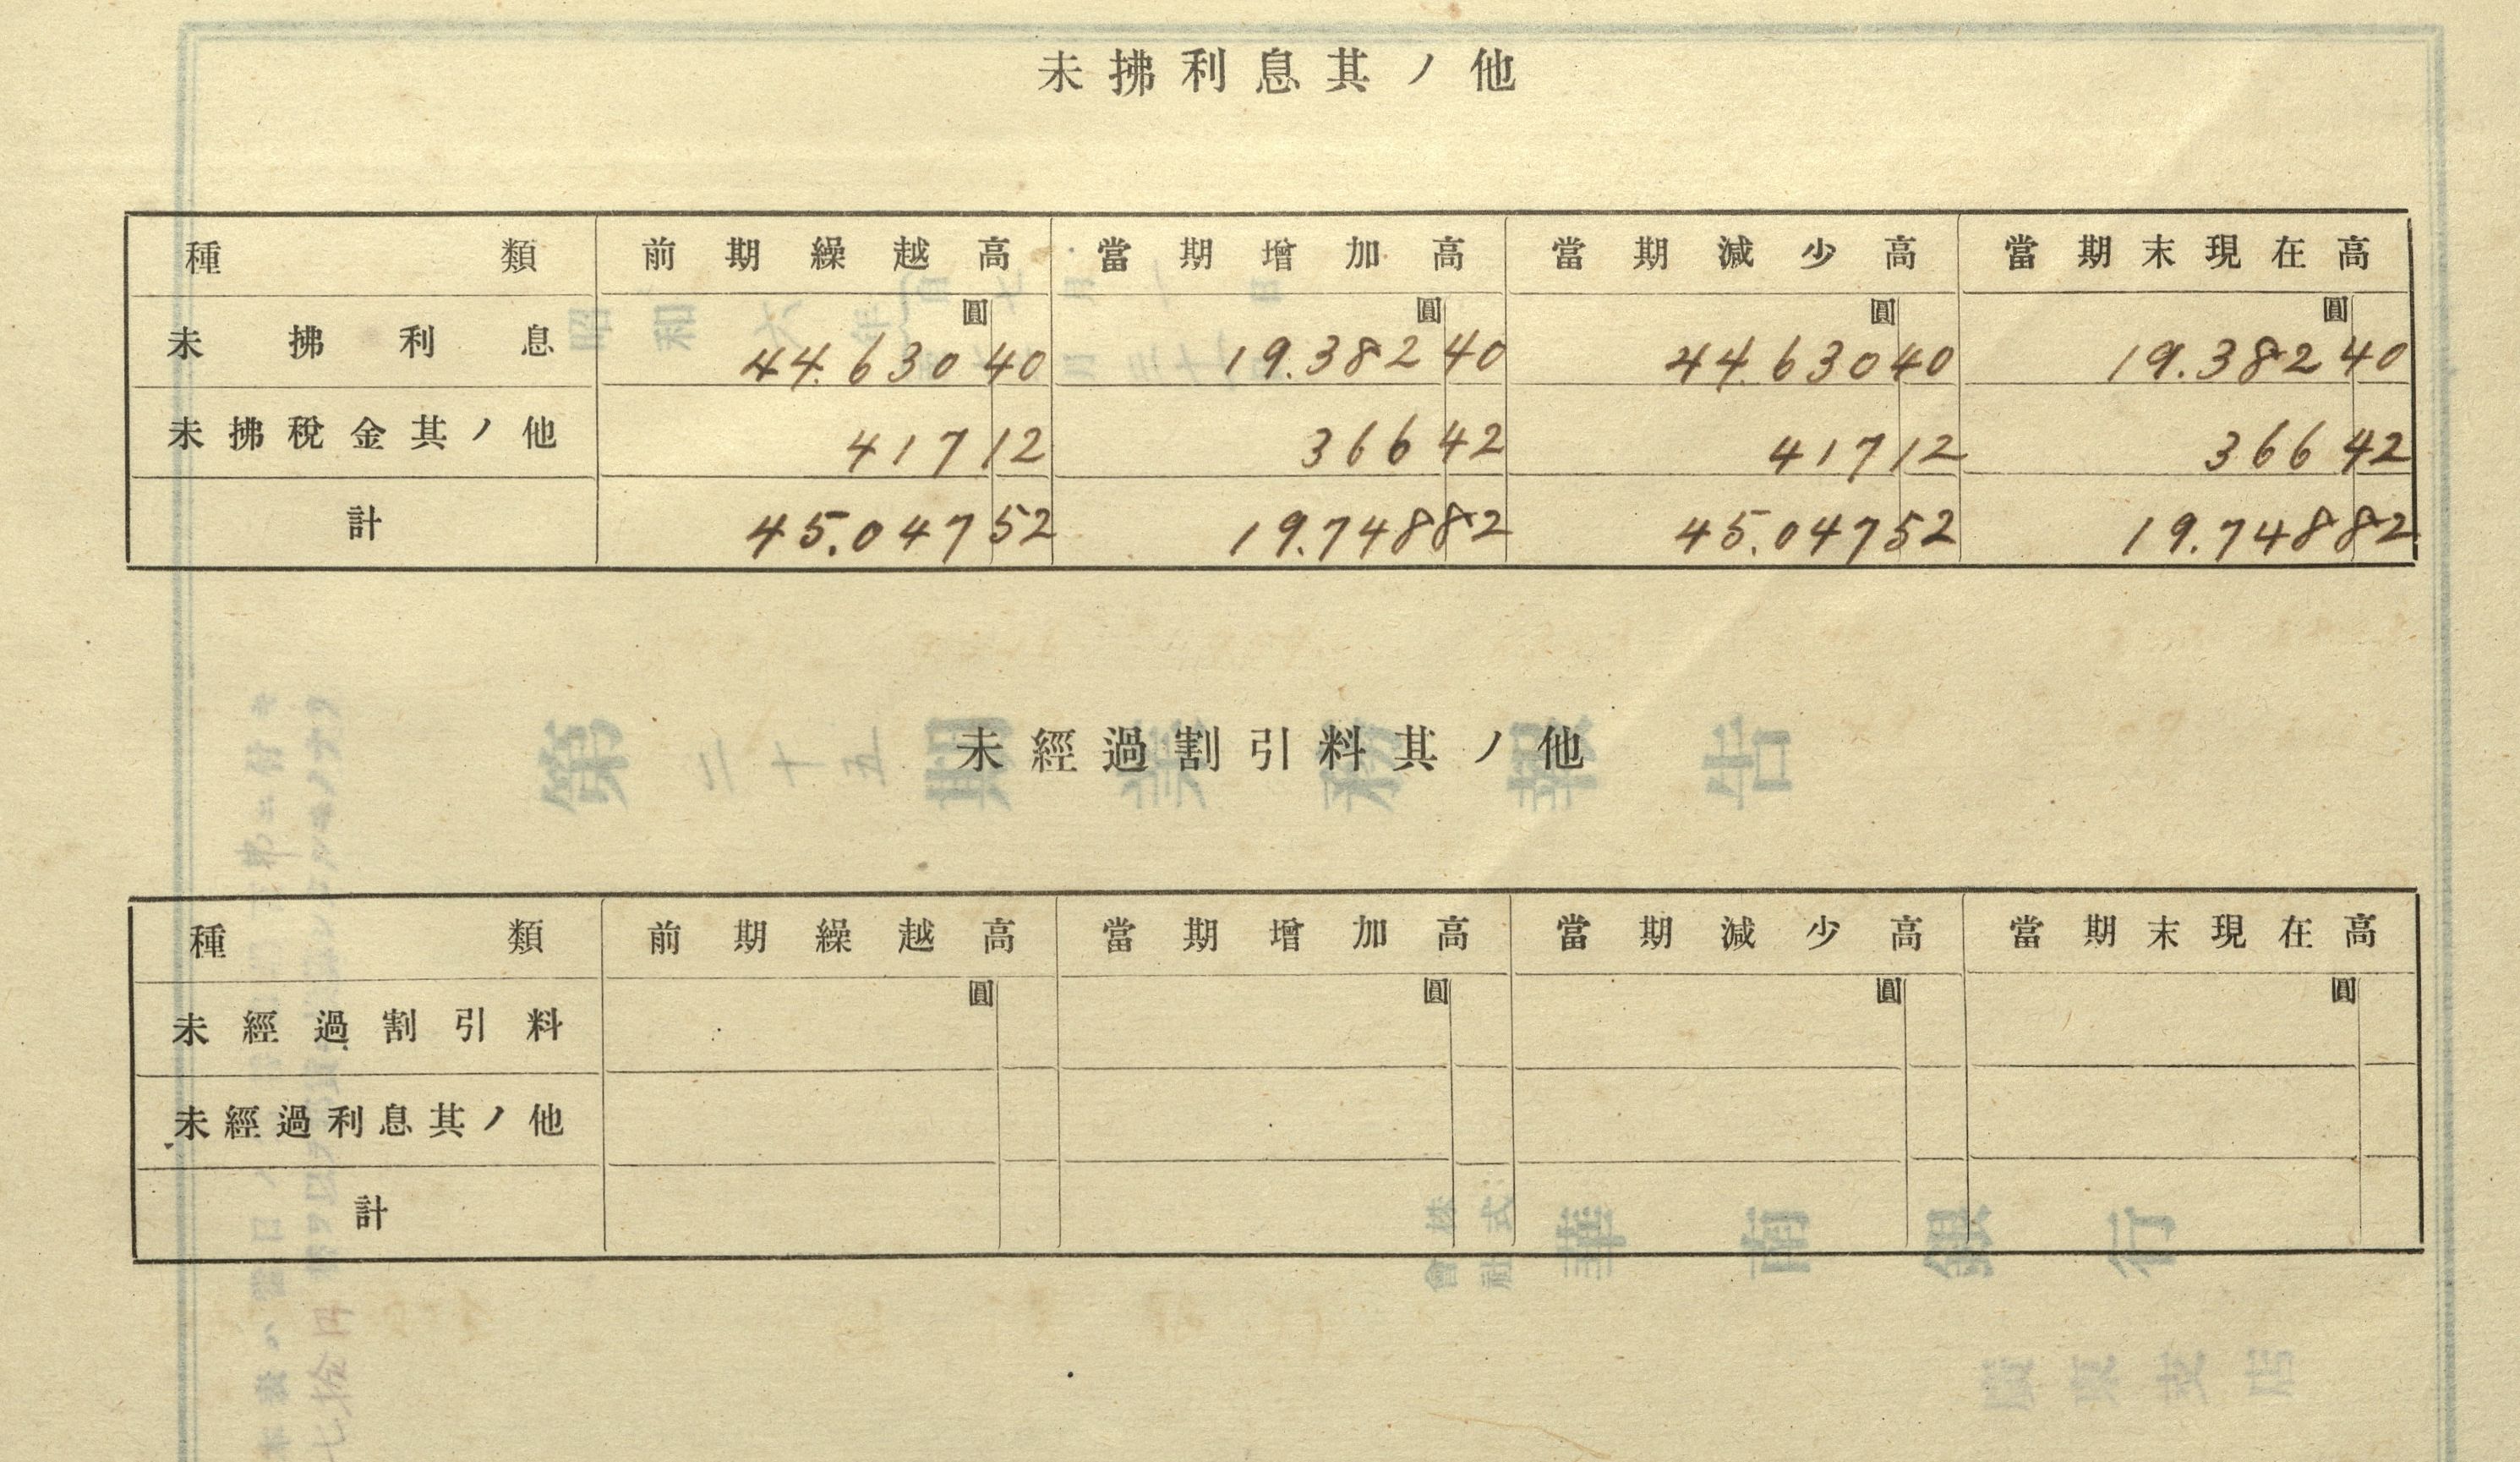 未拂利息其ノ他
種類 前期繰越高 當期增加高 當期減少高 當期末現在高
圓 圓 圓 圓
未拂利息 44.630 40 19.382 40 44.630 40 19.382 40
未拂稅金其ノ他 417 12 366 42 417 12 366 42
計 45.047 52 19.748 82 45.047 52 19.748 82
第二十五期業務報告
未經過割引料其ノ他
種類 前期繰越高 當期增加高 當期減少高 當期末現在高
圓 圓 圓 圓
未經過割引料
未經過利息其ノ他
計
株式會社 華南銀行